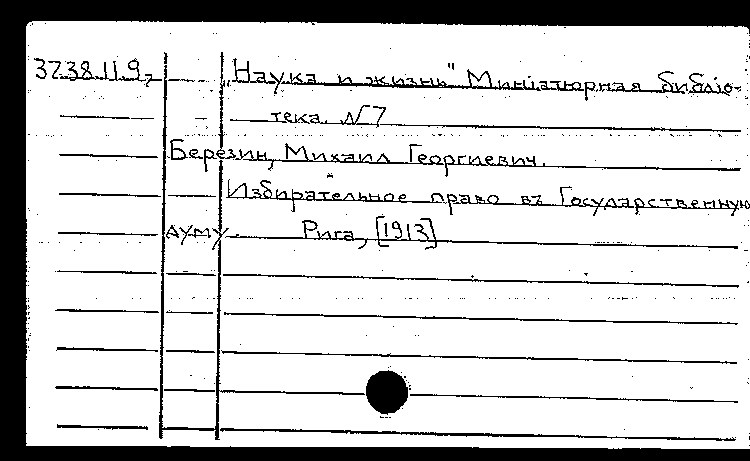 3238.11.9,
„Наука и жизнь" Минiатюрная библiо-
тека. №7
Березин, Михаил Георгиевич.
Избирательное право въ Государственную
думу. Рига, [1913]